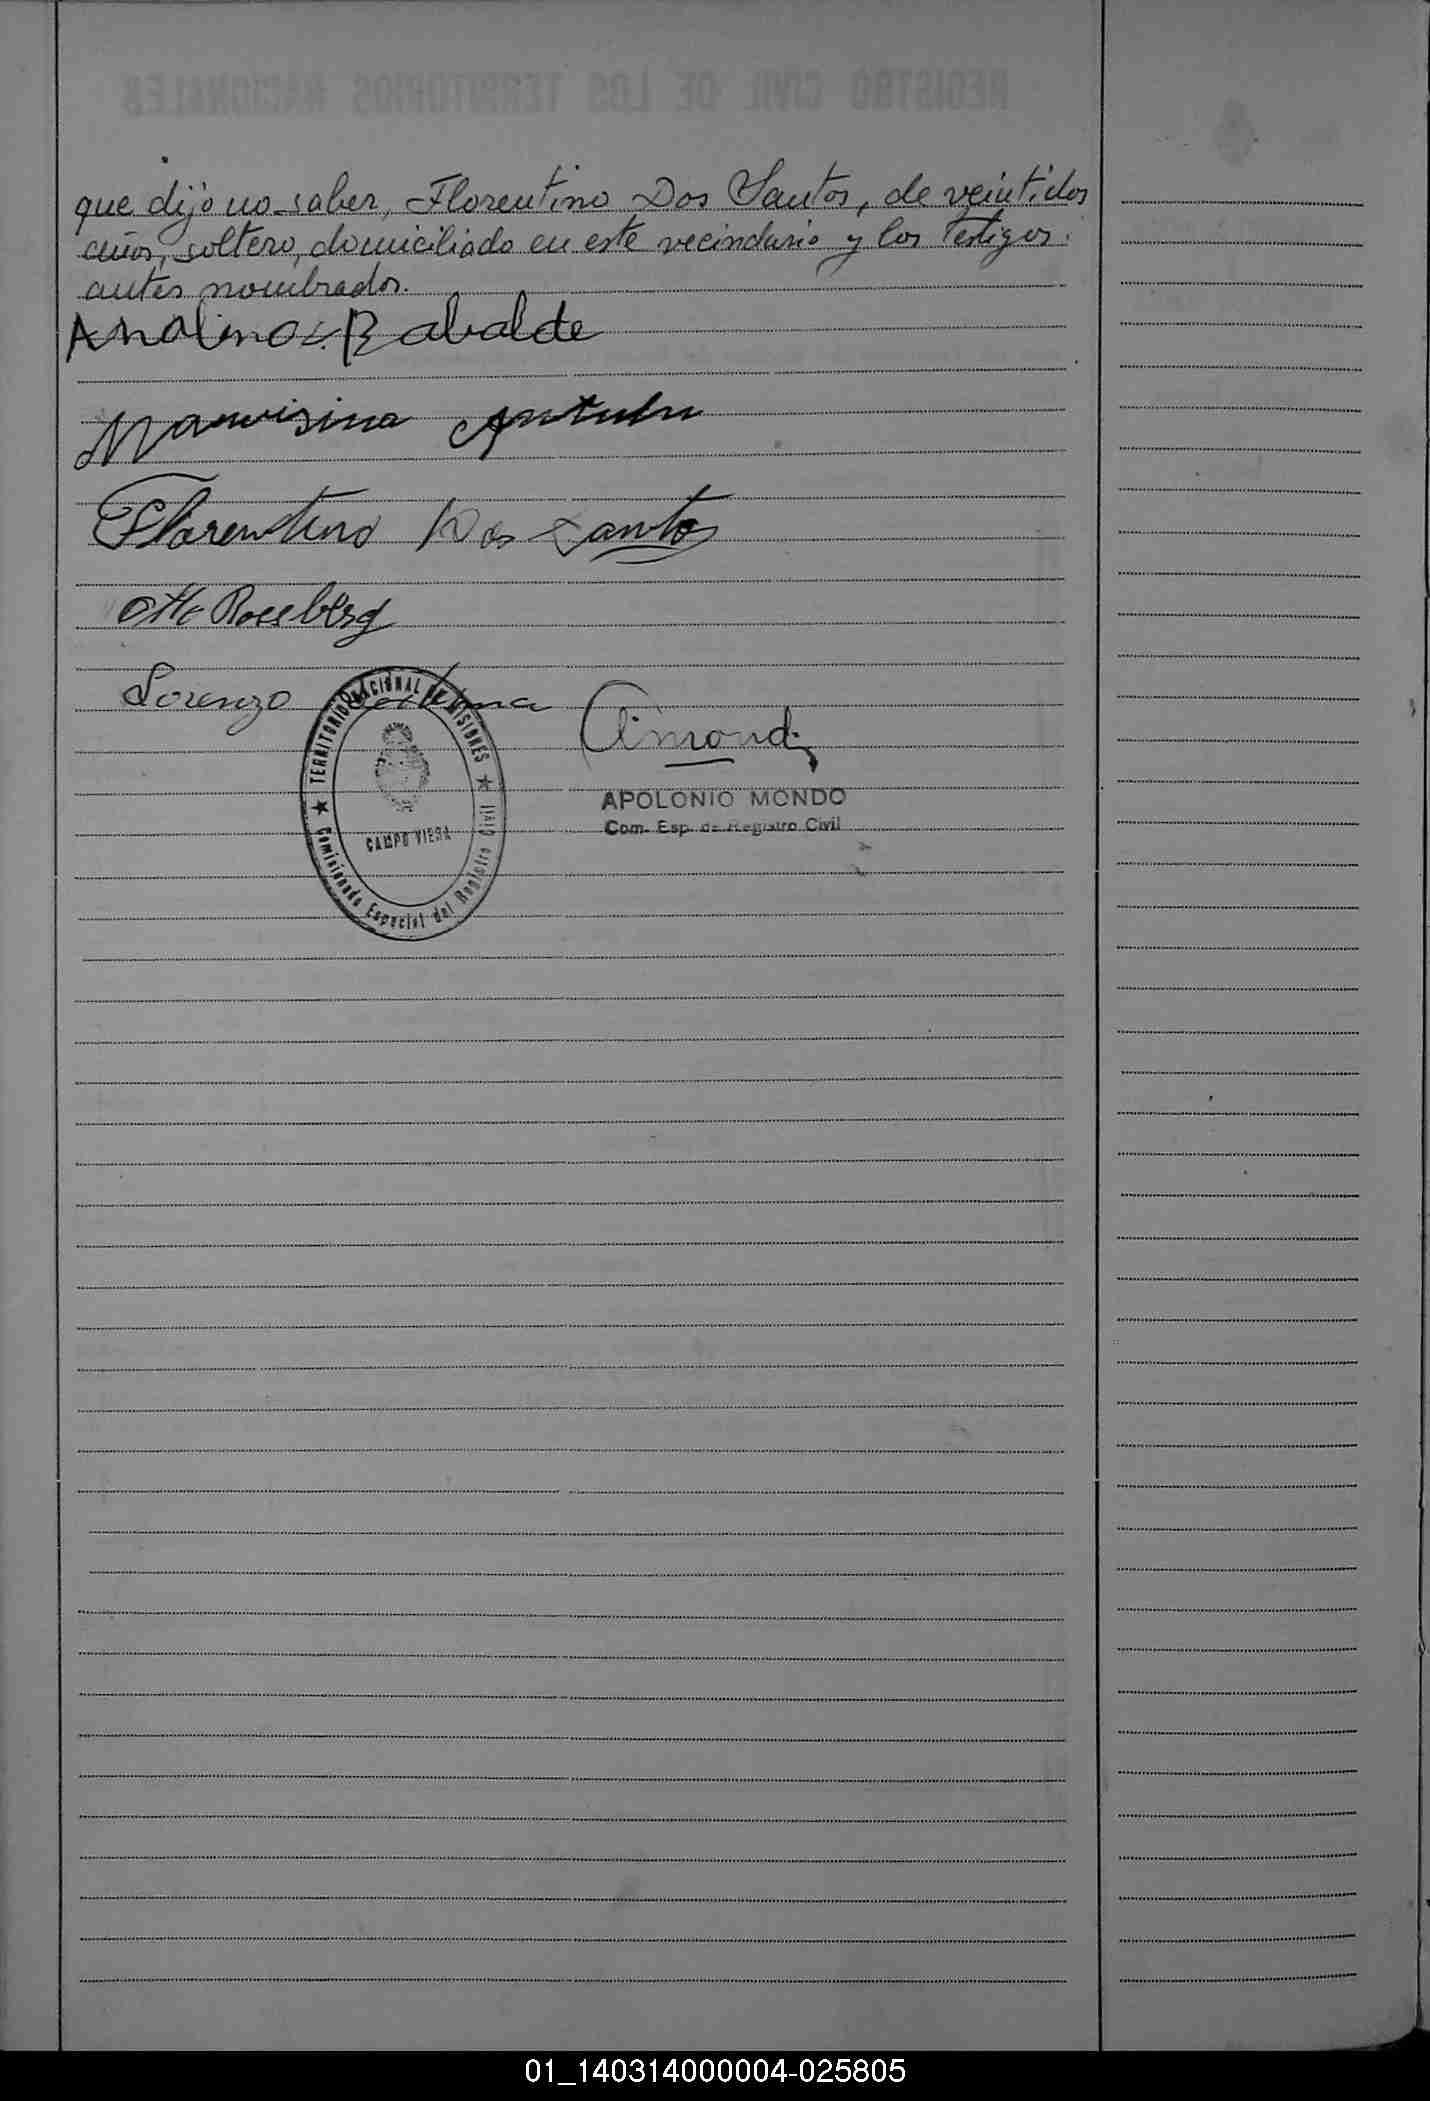 que dijo no saber, Florentino Dos Santos, de veintidos
años, soltero, domiciliado en este vecindario y los testigos
antes nombrados.
Florentino Dos Santos
Lorenzo
TERRITORIO NACIONAL DE MISIONES
CAMPO VIERA
Comisionado Especial del Registro Civil
APOLONIO MONDO
Com. Esp. de Registro Civil
01_140314000004-025805